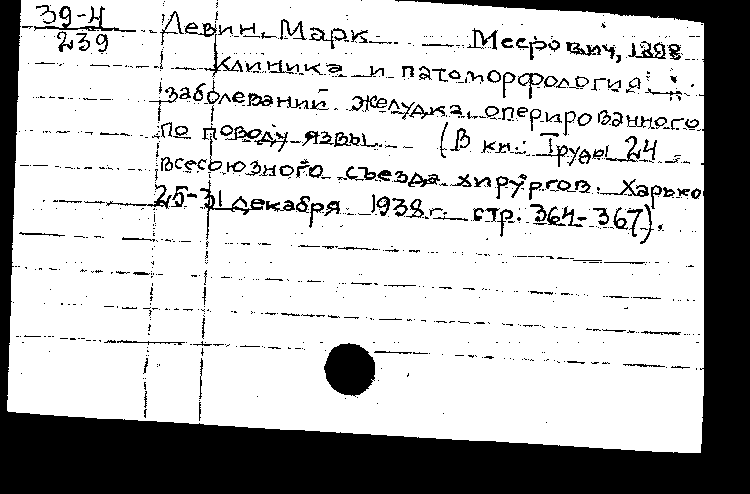 39-4
239
Левин, Марк Меерович, 1898
Клиника и патоморфология
заболеваний желудка, оперированного
по поводу язвы. (В кн.: Труды 24
всесоюзного съезда хирургов. Харько
25-31 декабря 1938 г. стр. 364-367).